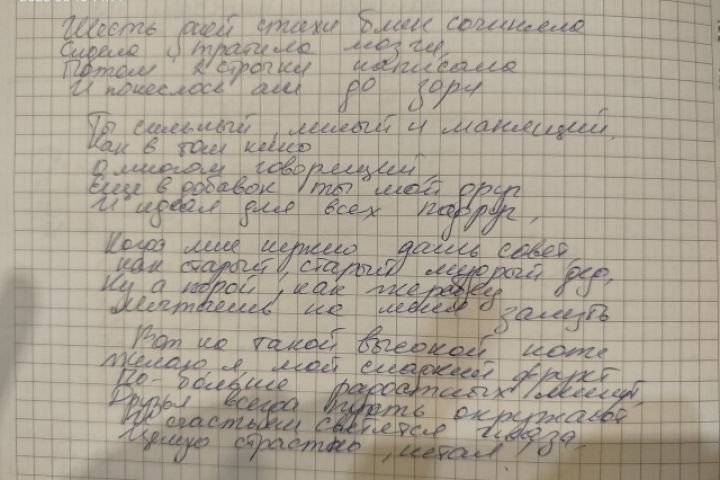 Шесть дней стихи блин сочиняла
Сидела, тратила мозги,
Потом 2 строчки написала
И понеслось аж до зори
Ты сильный, милый и манящий,
Как в том кино
о многом говорящий,
Еще в добавок ты мой друг
И идеал для всех подруг,
Когда мне нужно дашь совет,
как старый, старый мудрый дед,
Ну а порой, как жеребец
Мечтаешь на меня залезть
Вот на такой высокой ноте
Желаю я, мой сладкий фрукт
По-больше радостных минут,
Друзья всегда пусть окружают,
И счастьем светятся глаза,
Целую страстно,